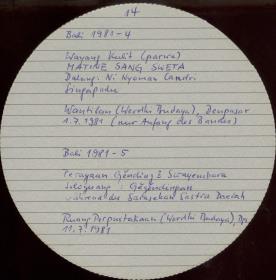 14
Bali 1981-4
Wayang Kulit (parwa)
MATINE SANG SWETA
Dalang: Ni Nyoman Candri
Singapadu
Wantilan (Werdhi Budaya), Denpasar
1.7.1981 (nur Anfang des Bandes)
Bali 1981-5
Perayaan Gending2 Swayembara
Seloguang: Geguritan
während des Sarasehan Sastra Daerah
Ruang Perpustakaan (Werdhi Budaya), Dps
11.7.1981